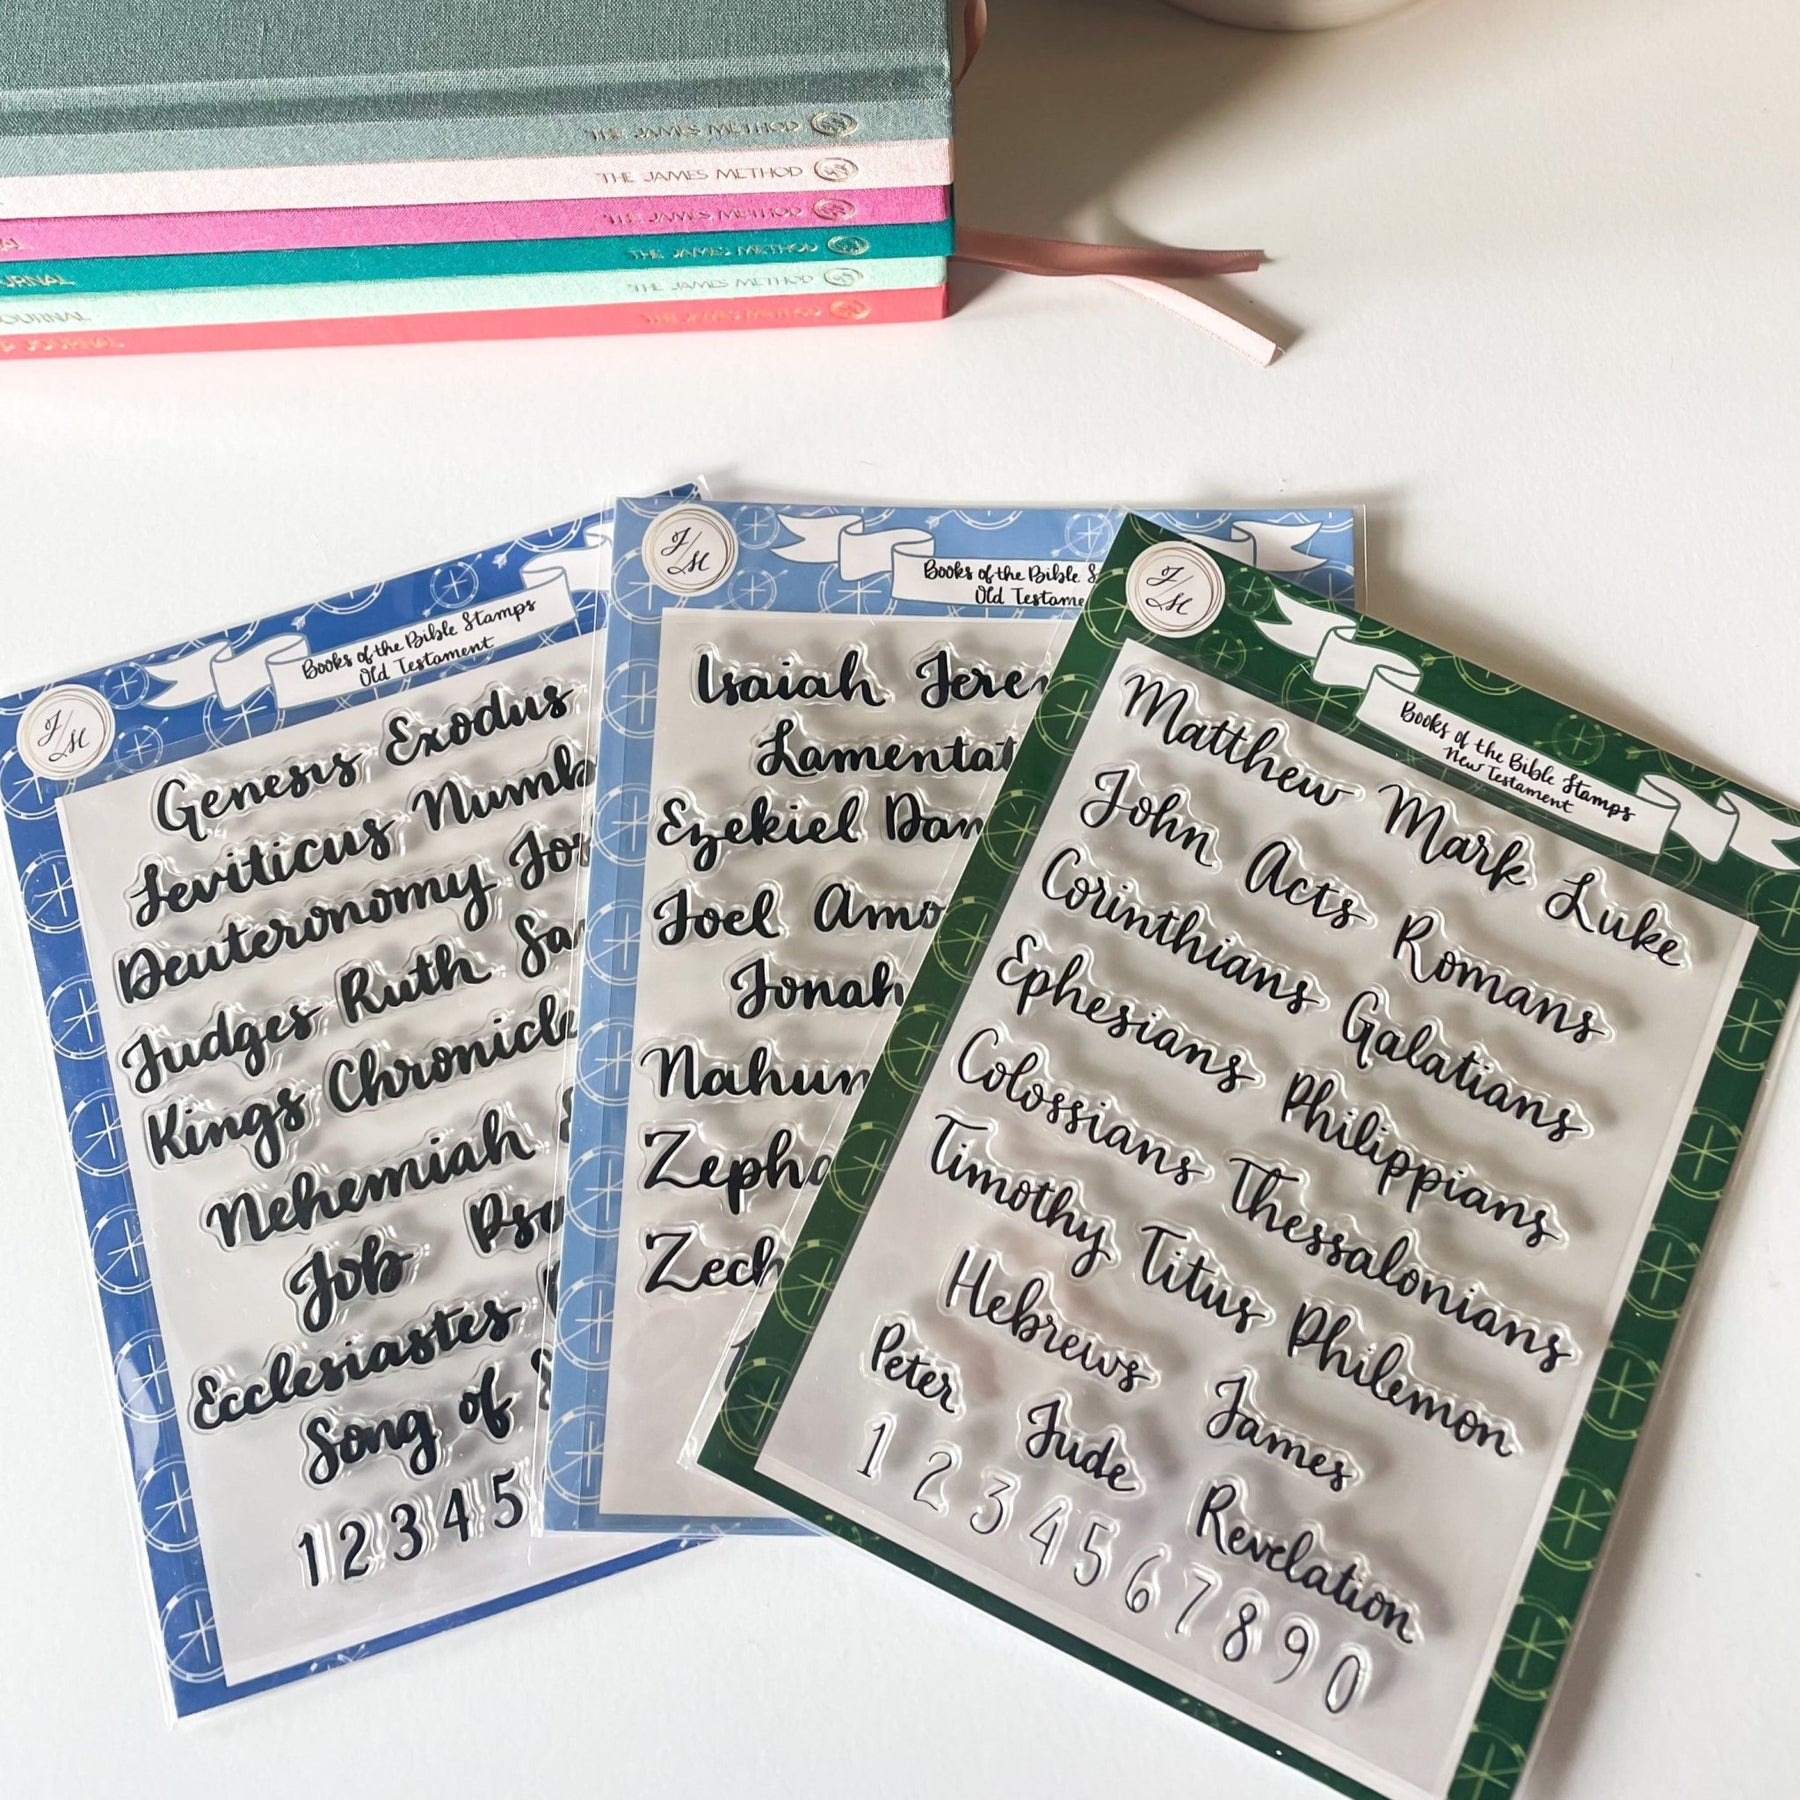 THE JAMES METHOD
THE JAMES METHOD
THE JAMES METHOD
THE JAMES METHOD
JOURNAL
THE JAMES METHOD
JOURNAL
THE JAMES METHOD
J/M
Books of the Bible Stamps
Old Testament
Genesis Exodus
Leviticus
Deuteronomy
Judges Ruth
Kings
Nehemiah
Job
Ecclesiastes
Song of
1 2 3 4 5
J/M
Books of the Bible
Old
Isaiah
Ezekiel
Joel
Jonah
J/M
Books of the Bible Stamps
New Testament
Matthew Mark Luke
John Acts Romans
Corinthians Galatians
Ephesians Philippians
Colossians Thessalonians
Timothy Titus Philemon
Hebrews James
Peter Jude Revelation
1 2 3 4 5 6 7 8 9 0